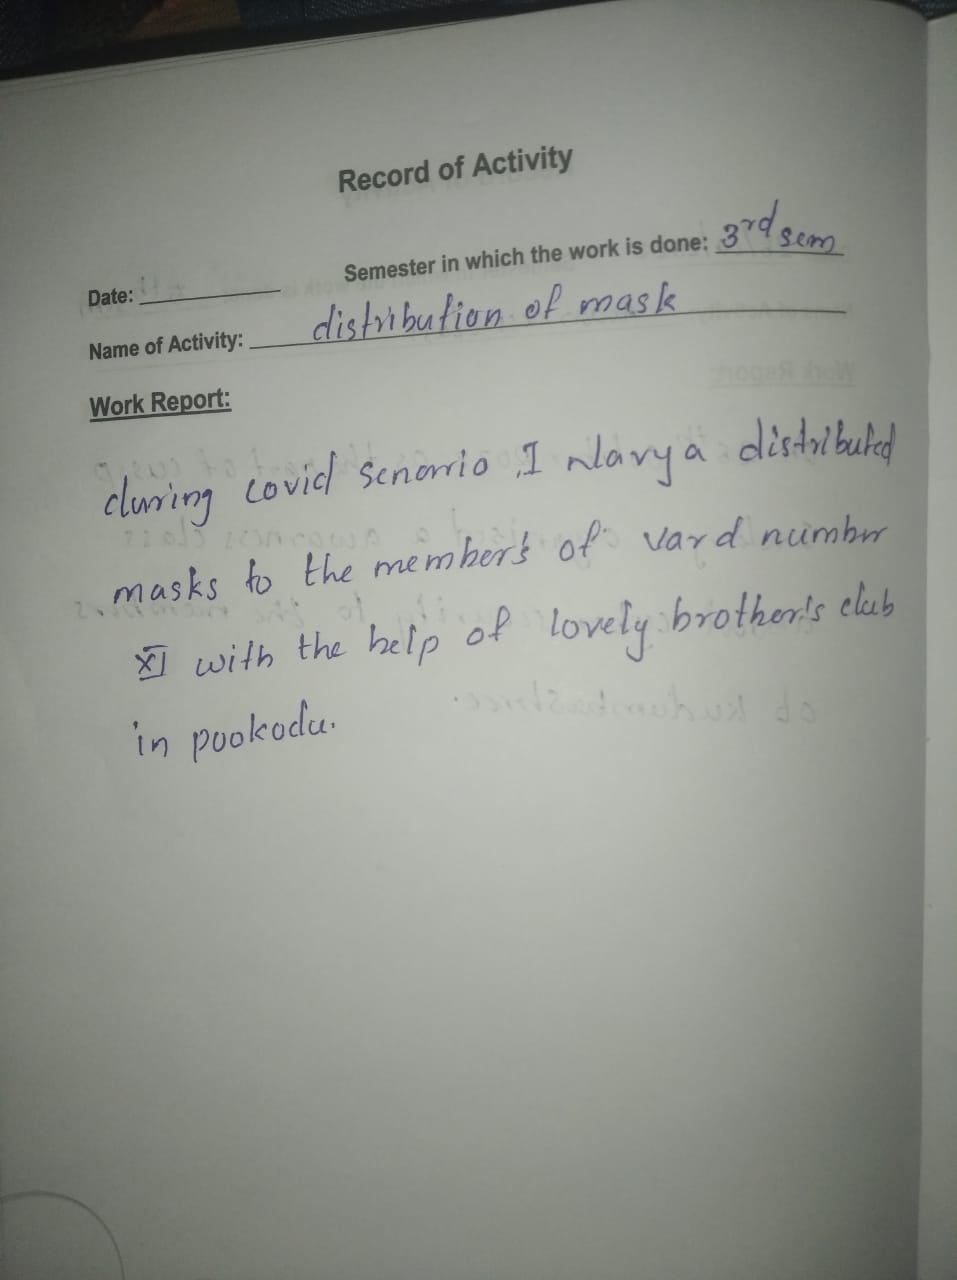 Record of Activity
Date: Semester in which the work is done: 3rd sem
Name of Activity: distribution of mask
Work Report:
during covid Senorrio, I Navya distributed
masks to the member's of vard number
XI with the help of lovely brother's club
in pookodu.